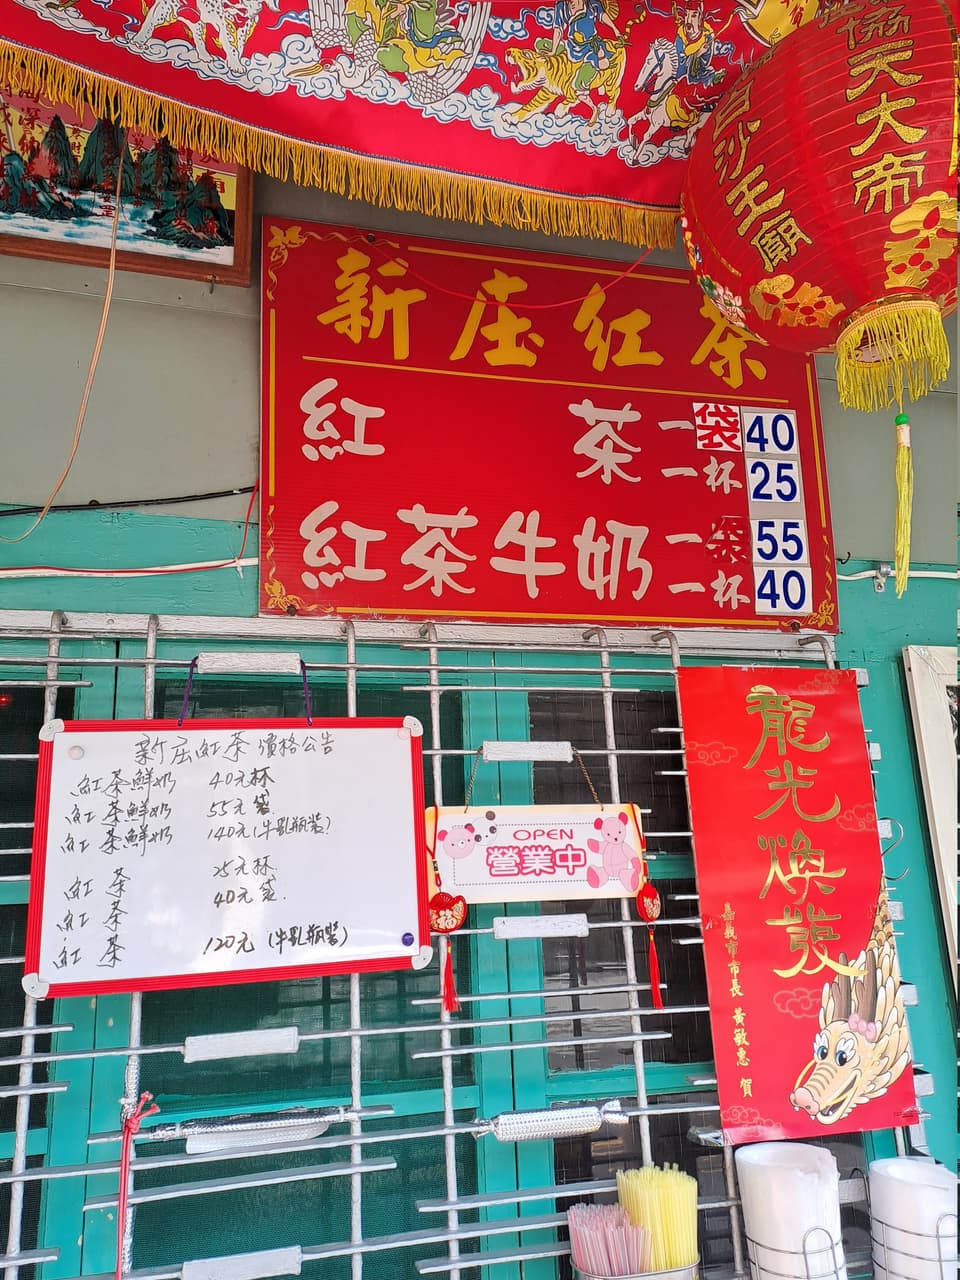 協天大帝
白沙王廟
新庄紅茶
紅茶 一袋 40
一杯 25
紅茶牛奶 一袋 55
一杯 40
新庄紅茶 價格公告
紅茶鮮奶 40元杯
紅茶鮮奶 55元袋
紅茶鮮奶 140元(牛乳瓶裝)
紅茶 25元杯
紅茶 40元袋.
紅茶 120元(牛乳瓶裝)
OPEN
營業中
福
龍光煥發
嘉義市市長 黃敏惠 賀